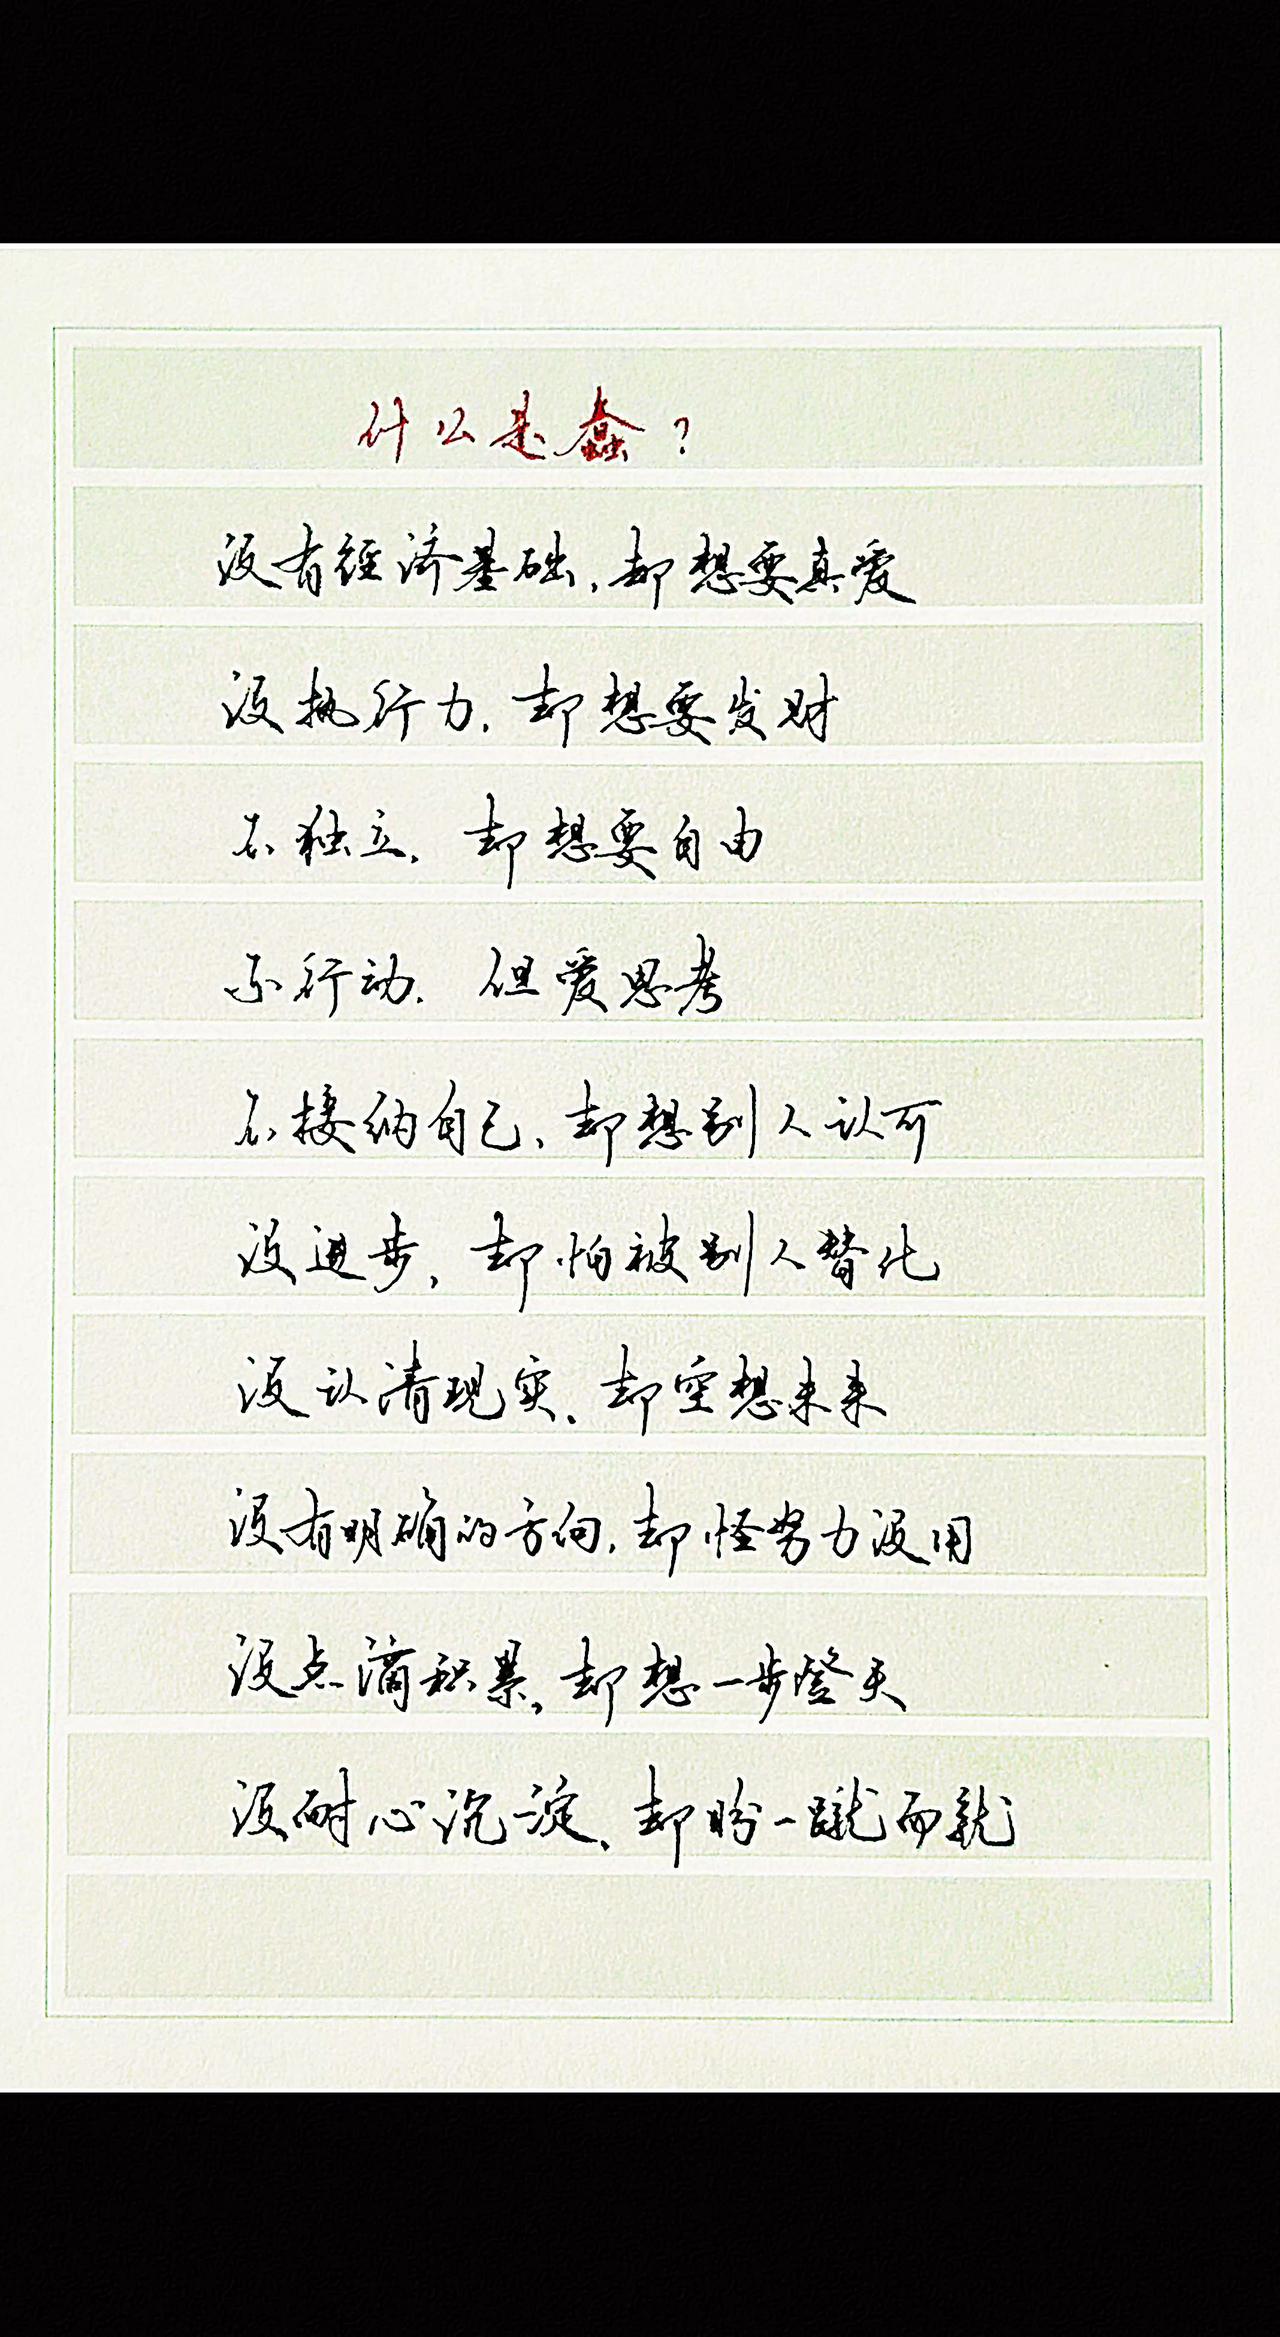 什么是蠢？
没有经济基础，却想要真爱
没执行力，却想要发财
不独立，却想要自由
不行动，但爱思考
不接纳自己，却想别人认可
没进步，却怕被别人替代
没认清现实，却空想未来
没有明确的方向，却怪努力没用
没点滴积累，却想一步登天
没耐心沉淀，却盼一蹴而就